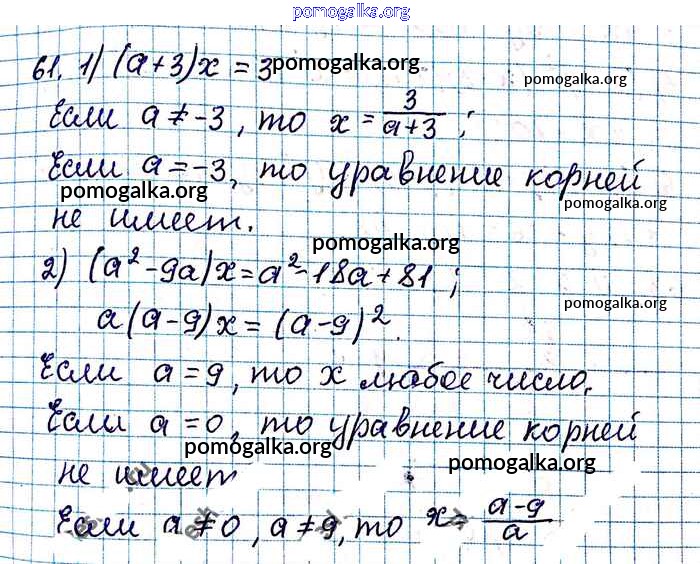 pomogalka.org
61. 1) (a+3)x = 3 pomogalka.org
pomogalka.org
Если a ≠ -3, то x = 3/(a+3) ;
Если a = -3, то уравнение корней
pomogalka.org pomogalka.org
не имеет.
pomogalka.org
2) (a² - 9a)x = a² - 18a + 81 ;
pomogalka.org
a(a-9)x = (a-9)².
Если a = 9, то x любое число.
Если a = 0, то уравнение корней
pomogalka.org pomogalka.org
не имеет
Если a ≠ 0, a ≠ 9, то x = (a-9)/a